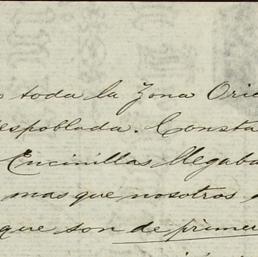 toda la Zona Orie
espoblada. Consta
Encinillas llegaba
mas que nosotros
que son de primer